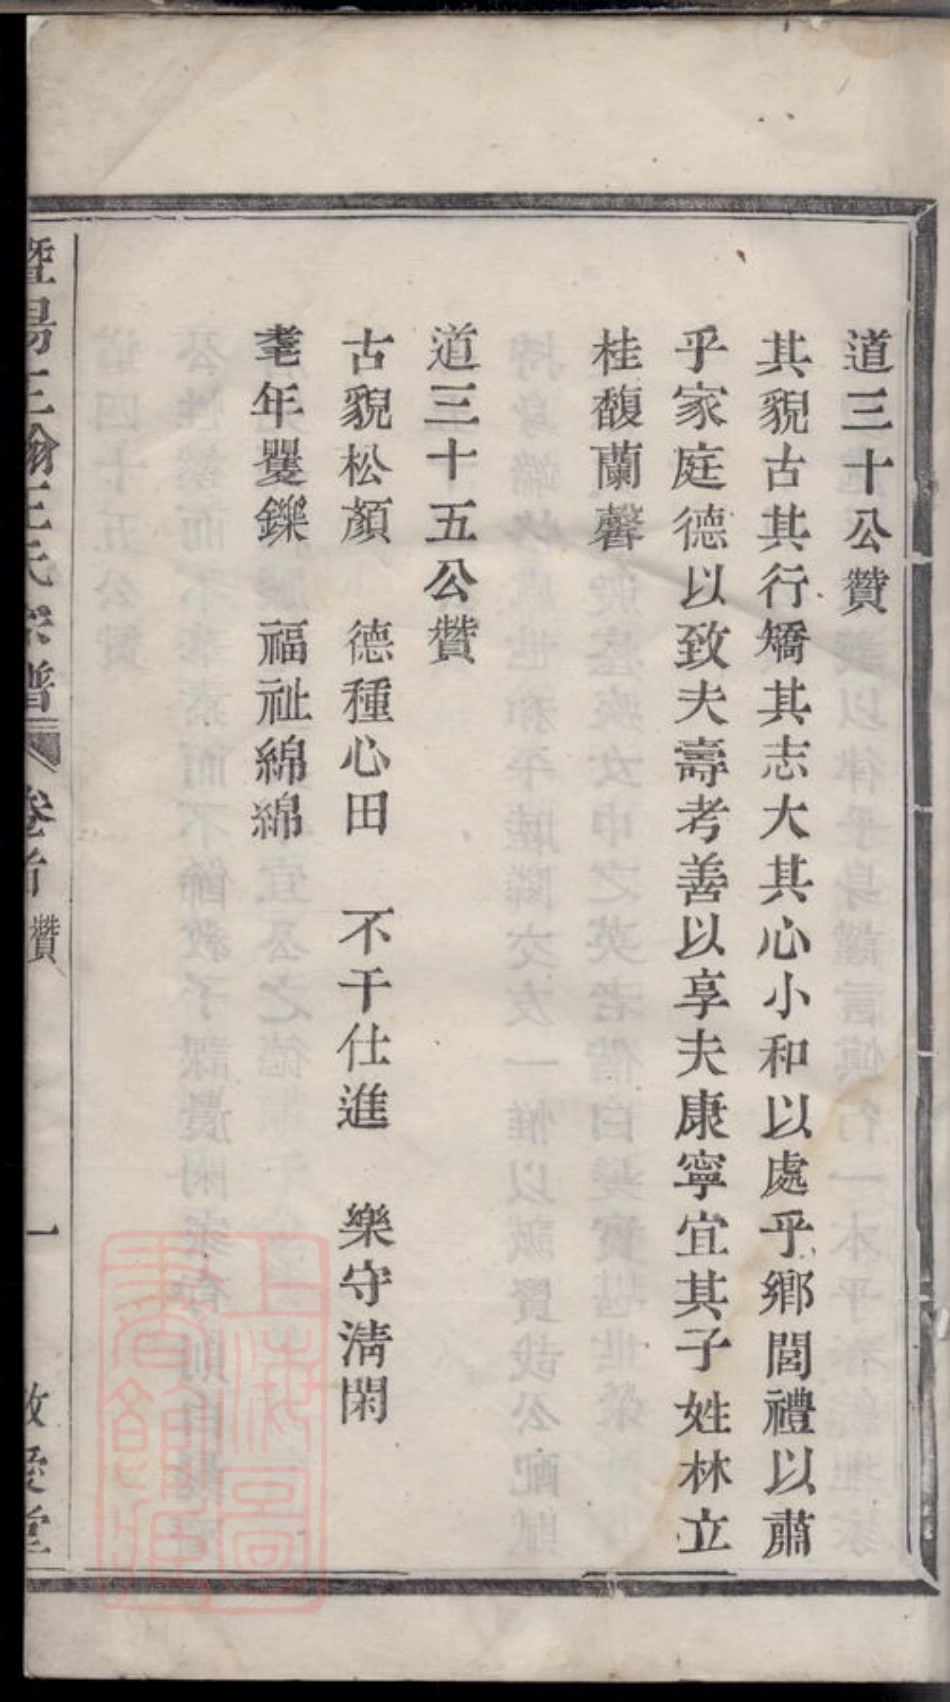 道三十公贊
其貌古其行矯其志大其心小和以處乎鄉閭禮以肅
乎家庭德以致夫壽考善以享夫康寧宜其子姓林立
桂馥蘭馨
道三十五公贊
古貌松顏　德種心田　不干仕進　樂守清閑
耄年矍鑠　福祉綿綿
暨陽　王氏宗譜　卷首　贊　一　愛堂
上海圖書館藏